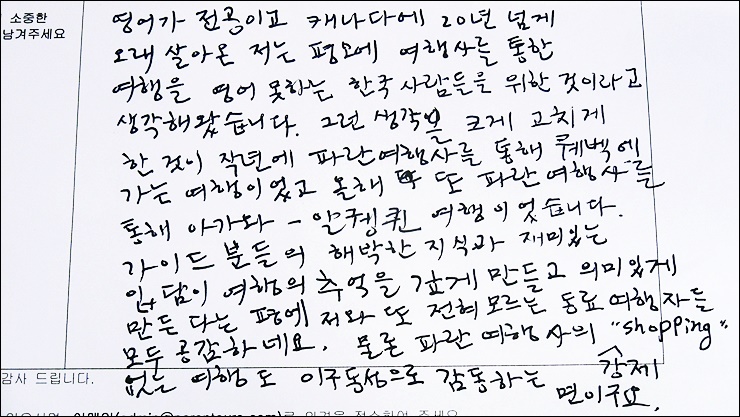 소중한
남겨주세요
영어가 전공이고 캐나다에 20년 넘게
오래 살아온 저는 평소에 여행사를 통한
여행을 영어 못하는 한국 사람들을 위한 것이라고
생각해왔습니다. 그런 생각을 크게 고치게
한 것이 작년에 파란여행사를 통해 퀘벡에
가는 여행이었고 올해 또 파란여행사를
통해 아가와 - 알곤퀸 여행이었습니다.
가이드 분들의 해박한 지식과 재미있는
입담이 여행의 추억을 깊게 만들고 의미있게
만든다는 평에 저와 또 전혀 모르는 동료 여행자들
모두 공감하네요. 물론 파란 여행사의 "shopping"
강제
없는 여행도 이구동성으로 감동하는 면이구요.
감사 드립니다.